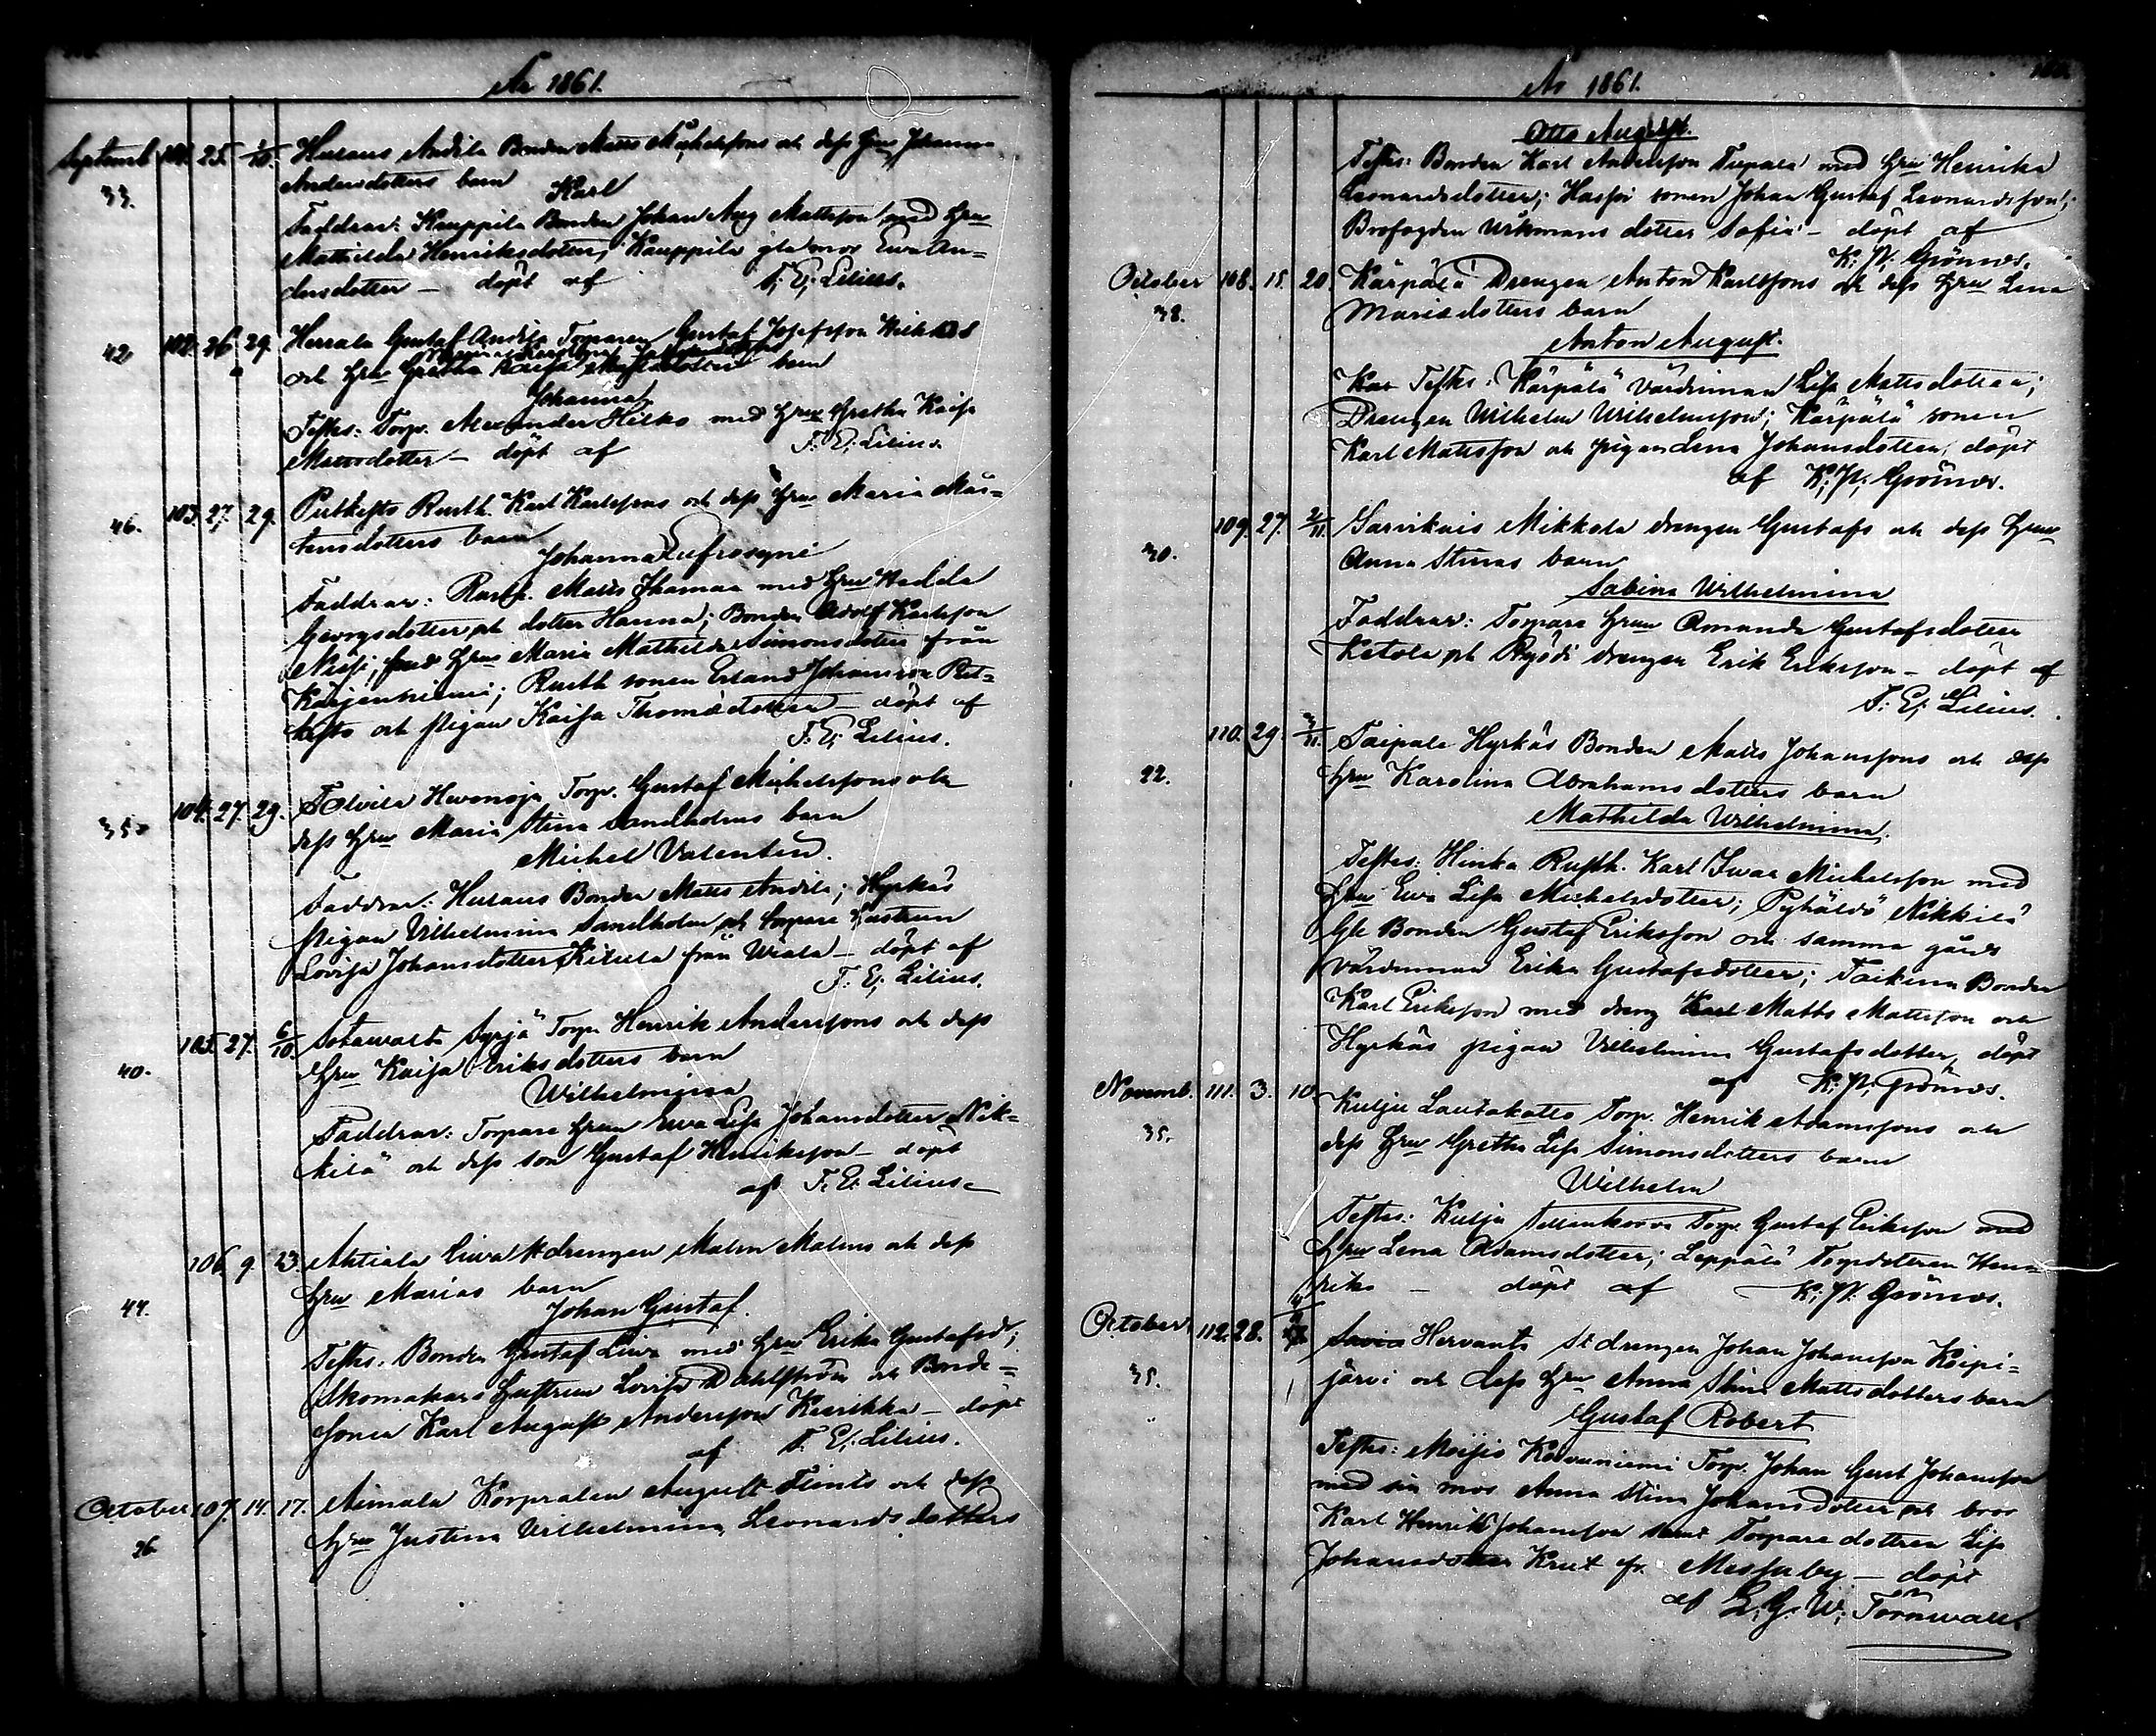 År 1861.
Septemb 101. 25. 1/10. Husaus Andila Bonden Matts Michelssons och dess Hru Johanna
33. Andersdotters barn
Karl
Faddrar: Kauppila Bonden Johan Aug Mattsson med Hru
Mathilda Henriksdotter; Kauppila gla mor Eva An=
dersdotter – döpt af F. E. Lilius.
42 102. 26. 29. Herrala Gustaf Andila Torparen Gustaf Josefsson
och Hru Gretha Kaisa barn
Johanna
Testes: Torp. Alexander Hilko med Hru Gretha Kaisa
Mattsdotter – döpt af F. E. Lilius.
46. 103. 27. 29. Putkisto Rusth. Karl Karlssons och dess Hru Maria Mår=
tensdotters barn
Johanna Eufrosyne
Faddrar: Rusth. Matts Thomas med Hru Hedda
Georgsdotter och dotter Hanna; Bonden Adolf Karlsson
med Hru Maria Mathilda Simonsdotter från
Kärjenniemi; Rusth sonen Erland Johansson Put=
kisto och pigan Kaisa Thomædotter – döpt af
F. E. Lilius.
35. 104. 27. 29. Tolvila Hevonoja Torp. Gustaf Michelssons och
dess Hru Maria Stina Sandholms barn
Michel Valentin.
Faddrar: Husaus Bonden Matts Andila; Hyrkäs
pigan Vilhelmina Sandholm och torpare hustrun
Lovisa Johansdotter Kitula från Wiala – döpt af
F. E. Lilius.
40. 105. 27. 6/10. Sotavalta Syrjä Torp Henrik Anderssons och dess
Hru Kaisa Eriksdotters barn
Wilhelmina
Faddrar: Torpare hrun Eva Lisa Johansdotter Nik=
kilä och dess son Gustaf Henriksson – döpt
af F. E. Lilius.
106. 9. 23. Ahtiala Liuva St drengen Malm Malms och dess
44. Hru Marias barn
Johan Gustaf.
Testes. Bonden Gustaf Liuva med Hru Erika Gustafsd;
Skomakare hustrun Lovisa Dahlström och Bonde=
sonen Karl August Andersson Kurikka – döpt
af F. E. Lilius.
October 107. 14. 17. Aimala Korpralen August Flinks och dess
26. Hru Justina Vilhelmina Leonardsdotters
År 1861.
Otto August.
Testes: Bonden Karl Andersson Tupala med Hru Henrika
Leonardsdotter; Haspoi sonen Johan Gustaf Leonardsson;
Brofogden Wikmans dotter Sofia – döpt af
K. W. Grönros.
October 108. 15. 20. Kärpälä Drengen Anton Karlssons och dess Hru Lena
38. Mariædotters barn
Anton August.
Kar Testes: Kärpälä Värdinnan Lisa Mattsdotter;
Drengen Wilhelm Wilhelmsson; Kärpälä sonen
Karl Mattsson och pigan Lena Johansdotter, döpt
af K. W. Grönros.
109. 27. 2/11. Sarvikais Mikkola drengen Gustafs och dess Hru
30. Anna Stinas barn
Sabina Wilhelmina
Faddrar: Torpare hrun Amanda Gustafsdotter
Ketola och Rysödi drengen Erik Eriksson – döpt af
F. E. Lilius.
110. 29. 3/11. Taipale Hyrkäs Bonden Matts Johanssons och dess
22. Hru Karolina Abrahamsdotters barn
Mathilda Wilhelmina.
Testes: Hinka Rusth. Karl Ivar Michelsson med
Hru Eva Lisa Michelsdotter; Pyhäldö Nikkilä
Gle Bonden Gustaf Eriksson och samma gårds
värdinnan Erika Gustafsdotter; Taikina Bonden
Karl Eriksson med dreng Karl Matts Mattsson och
Hyrkäs pigan Vilhelmina Gustafsdotter, döpt
af K. W. Grönros.
Novemb. 111. 3. 10. Kulju Lautakatto Torp. Henrik Adamssons och
35. dess Hru Gretha Lisa Simonsdotters barn
Wilhelm
Testes: Kulju Torp. Gustaf Eriksson med
Hru Lena Adamsdotter; Leppälä Torpdottren Hen=
rika – döpt af K. W. Grönros.
October 112. 28. Savia Hervanta St drengen Johan Johansson Koipi=
35. järvi och dess Hru Anna Stina Mattsdotters barn
Gustaf Robert
Testes: Moijio Koivuniemi Torp. Johan Gust Johansson
med sin mor Anna Stina Johansdotter och bror
Karl Henrik Johansson samt Torpare dottren Lisa
Johansdotter Krut fr. Messuby – döpt
af L. G. W. Törnwall.